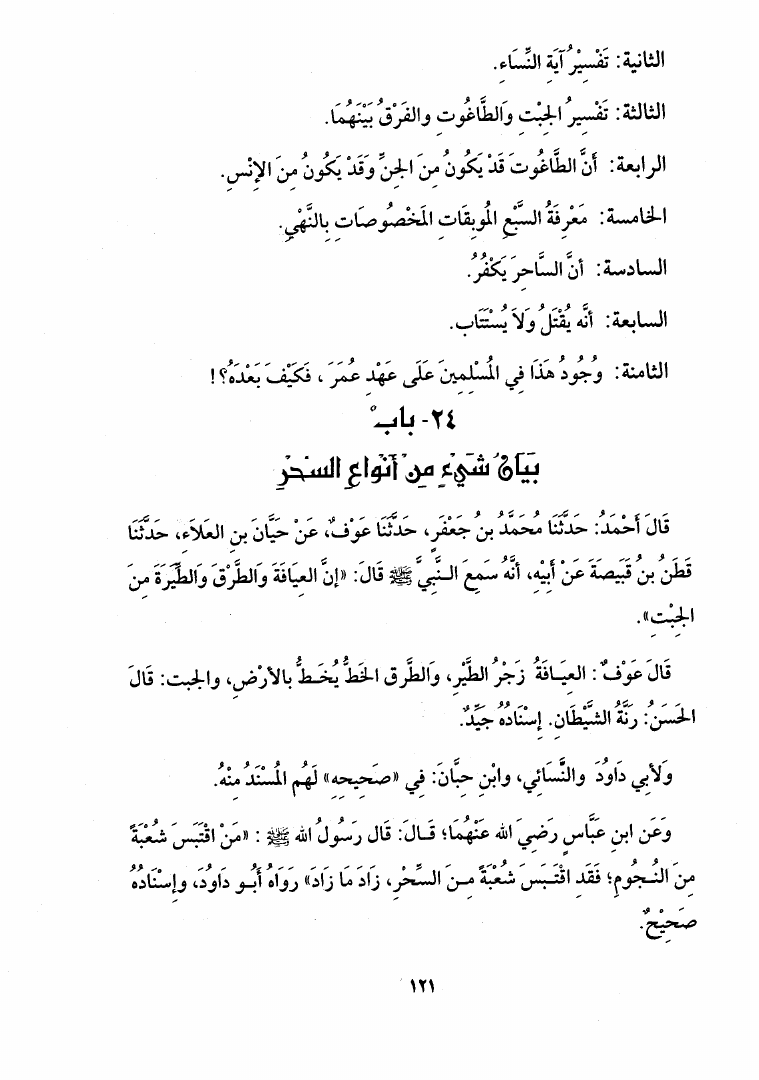 الثانية: تَفْسِيْرُ آيَةِ النِّسَاءِ.
الثالثة: تَفْسِيرُ الجِبْتِ وَالطَّاغُوتِ والفَرْقُ بَيْنَهُمَا.
الرابعة: أنَّ الطَّاغُوتَ قَدْ يَكُونُ مِنَ الجِنِّ وَقَدْ يَكُونُ مِنَ الإنْسِ.
الخامسة: مَعْرِفَةُ السَّبْعِ المُوبِقَاتِ المَخْصُوصَاتِ بِالنَّهْيِ.
السادسة: أنَّ السَّاحِرَ يَكْفُرُ.
السابعة: أنَّه يُقْتَلُ وَلاَ يُسْتَتَاب.
الثامنة: وُجُودُ هَذَا فِي المُسْلِمِينَ عَلَى عَهْدِ عُمَرَ ، فَكَيْفَ بَعْدَهُ؟!
٢٤- بابْ
بَيَانُ شَيْءٍ مِنْ أنْوَاعِ السِّحْرِ
قَالَ أحْمَدُ: حَدَّثَنَا مُحَمَّدُ بنُ جَعْفَرٍ، حَدَّثَنَا عَوْفٌ، عَنْ حَيَّانَ بنِ العَلاَءِ، حَدَّثَنَا
قَطَنُ بنُ قَبِيصَةَ عَنْ أبِيْهِ، أنَّهُ سَمِعَ الـنَّبِيَّ ﷺ قَالَ: «إنَّ العِيافَةَ وَالطَّرْقَ وَالطِّيَرَةَ مِنَ
الجِبْتِ».
قَالَ عَوْفٌ: العِيَـافَةُ زَجْرُ الطَّيْرِ، وَالطَّرق الخَطُّ يُخَـطُّ بالأرْضِ، والجبت: قَالَ
الحَسَنُ: رَنَّةُ الشَّيْطَانِ. إسْنَادُهُ جَيِّدٌ.
وَلأبي دَاوُدَ والنَّسَائي، وابْنِ حِبَّانَ: في «صَحِيحِهِ» لَهُم المُسْنَدُ مِنْهُ.
وَعَن ابنِ عَبَّاسٍ رَضِيَ الله عَنْهُمَا؛ قَـالَ: قَال رَسُولُ الله ﷺ : «مَنْ اقْتَبَسَ شُعْبَةً
مِنَ النُّـجُومِ؛ فَقَدِ اقْتَـبَسَ شُعْبَةً مِـنَ السِّحْرِ، زَادَ مَا زَاد» رَوَاهُ أبُـو دَاوُدَ، وإسْنَادُهُ
صَحِيْحٌ.
١٢١